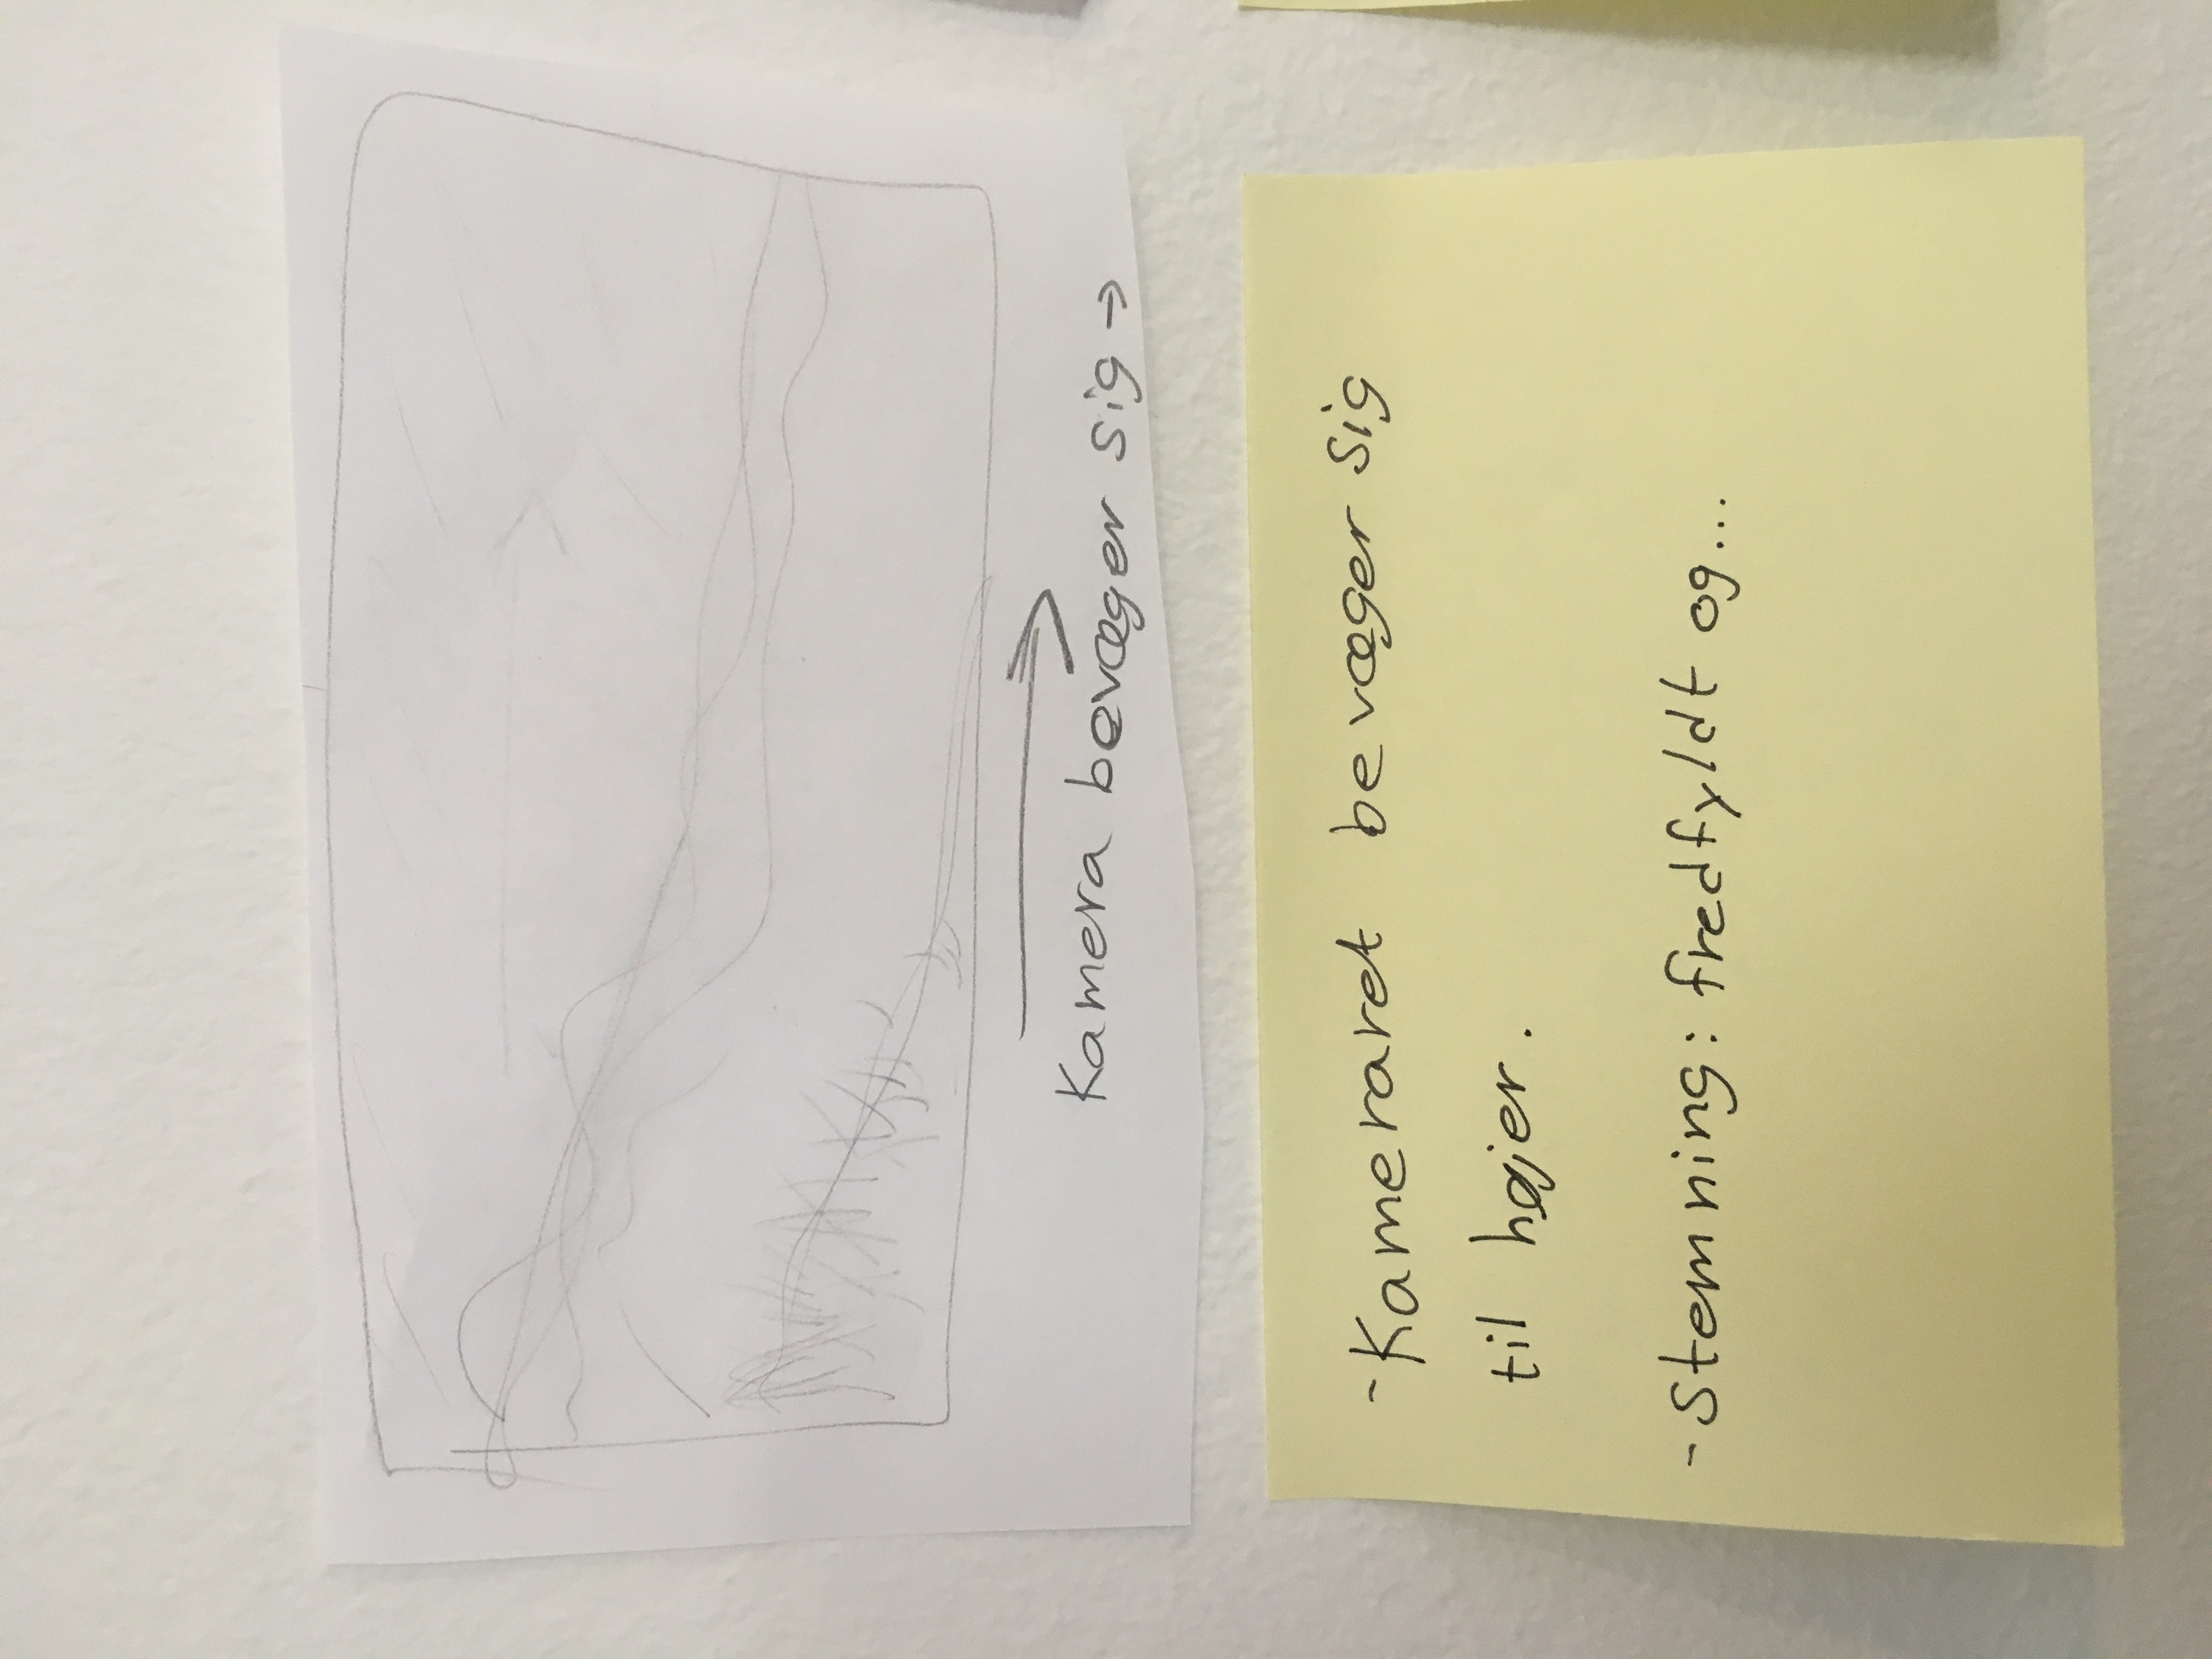 Kamera bevæger sig →
- Kameraret bevæger sig
til højer.
- Stemning: fredfyldt og...